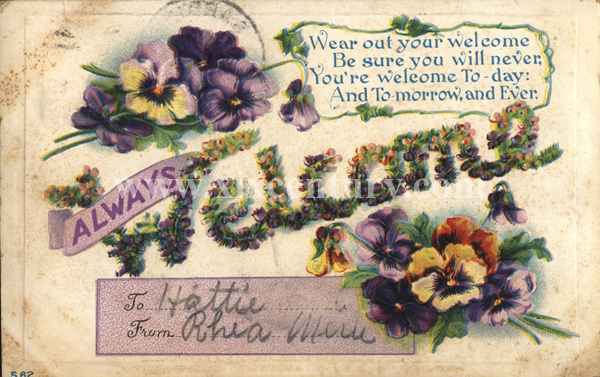 Wear out your welcome
Be sure you will never,
You're welcome To-day:
And To-morrow, and Ever.
ALWAYS
Welcome
www.xixcentury.com
To Hattie
From Rhea Merie
562